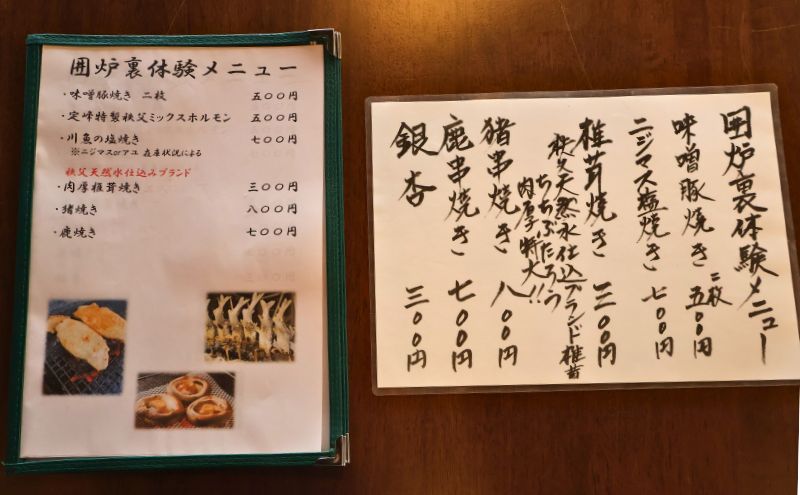 囲炉裏体験メニュー
・味噌豚焼き 二枚 五〇〇円
・定峰特製秩父ミックスホルモン 五〇〇円
・川魚の塩焼き 七〇〇円
※ニジマスorアユ 在庫状況による
秩父天然水仕込みブランド
・肉厚椎茸焼き 三〇〇円
・猪焼き 八〇〇円
・鹿焼き 七〇〇円
囲炉裏体験メニュー
味噌豚焼き 二枚 五〇〇円
ニジマス塩焼き 七〇〇円
椎茸焼き 三〇〇円
秩父天然水仕込ブランド椎茸
ちちぶたろう
肉厚、特大!!
猪串焼き 八〇〇円
鹿串焼き 七〇〇円
銀杏 三〇〇円